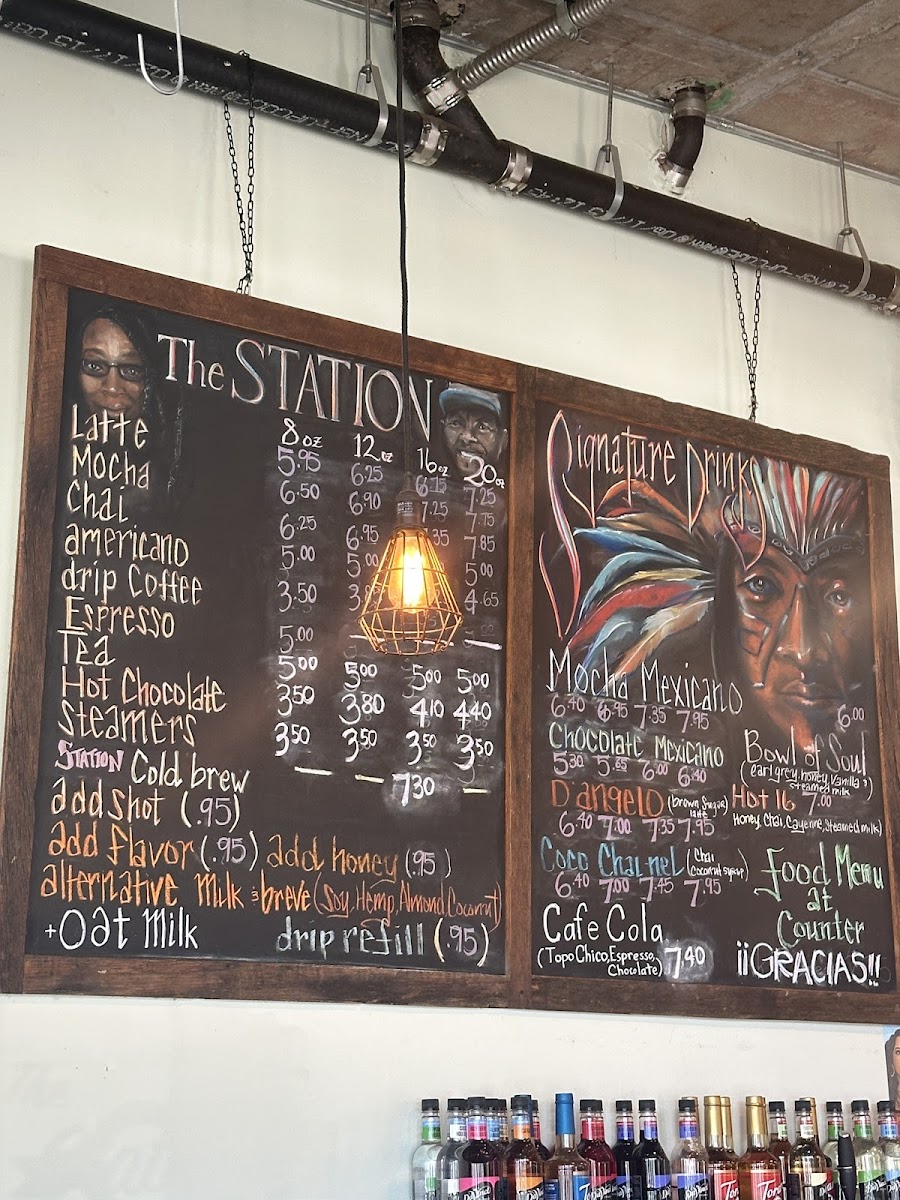 The STATION
8 oz 12 oz 16 oz 20 oz
Latte 5.95 6.25 6.75 7.25
Mocha 6.50 6.90 7.25 7.75
Chai 6.25 6.95 7.85
americano 5.00 5.00 5.00
drip Coffee 3.50 4.65
Espresso 5.00
Tea 5.00 5.00 5.00 5.00
Hot Chocolate 3.50 3.80 4.10 4.40
Steamers 3.50 3.50 3.50 3.50
STATION Cold brew 7.30
add shot (.95)
add flavor (.95) add honey (.95)
alternative milk & breve (Soy, Hemp, Almond, Coconut)
+Oat Milk drip refill (.95)
Signature Drinks
Mocha Mexicano
6.40 6.95 7.35 7.95
Chocolate Mexicano
5.30 5.65 6.00 6.40
D'angelo (brown sugar latte)
6.40 7.00 7.35 7.95
Coco Chai-nel (Chai Coconut syrup)
6.40 7.00 7.45 7.95
Cafe Cola
(Topo Chico, Espresso, Chocolate) 7.40
6.00
Bowl of Soul
(earl grey, honey, Vanilla &
steamed milk
Hot 16 7.00
Honey, Chai, Cayenne, Steamed milk)
Food Menu
at
Counter
¡¡GRACIAS!!